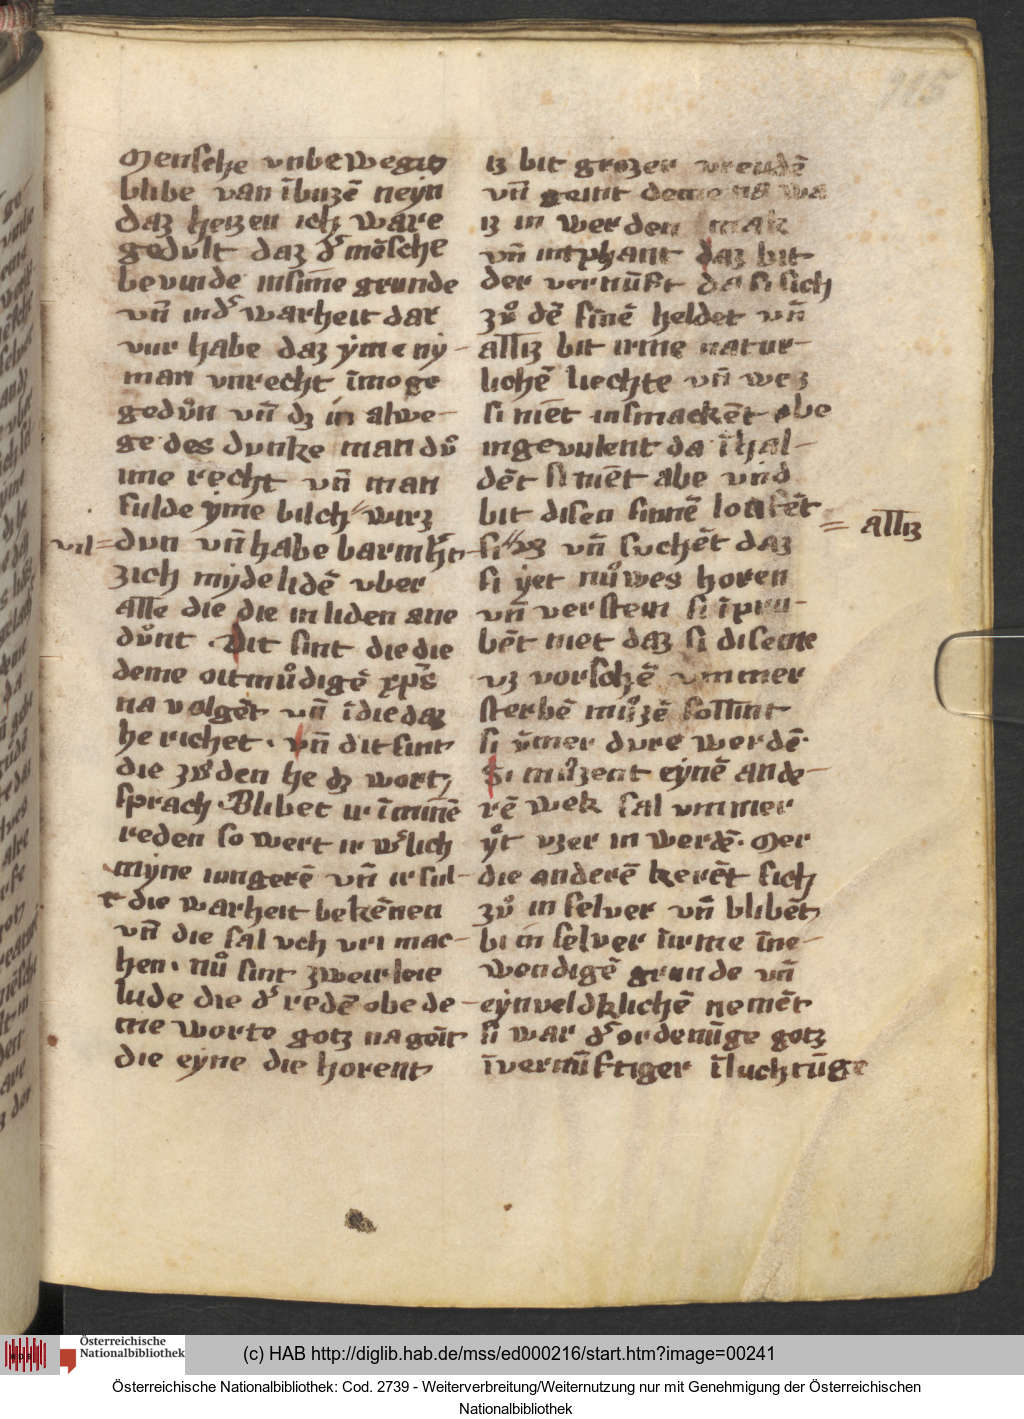 115
Mensche vnbewegit
blibe van ībuzē neyn
daz heizen ich ware
gedult daz d' mēsche
bevinde insime grunde
vn̄ ind' warheit dar
vur habe daz yme ny-
man vnrecht īmoge
gedůn vn̄ dz in alwe-
ge des dunke man dů
ime recht vn̄ man
sulde yme bilch wirz
vil= dun vn̄ habe barmh'-
zich mydelidē vber
alle die die in liden ane
důnt . Dit sint die die
deme oitmůdigē xp̄s
na volgēt vn̄ īdie daz
he richet . vn̄ dit sint
die zů den he dz wort
sprach . Blibet ir īminē
reden so wert ir w'lich
myne iungerē vn̄ ir sul-
t die warheit bekēnen
vn̄ die sal vch vri mac-
hen . nů sint zweirleie
lude die d' redē obe de-
me worte gotz na geīt
die eyne die horent
iz bit grozer vreudē
vn̄ geint deme na wa
iz in werden mak
vn̄ intphant daz bit
der vernūft da si sich
zů dē sinē heldet vn̄
alliz bit irme natur-
lichē liechte vn̄ wez
si niēt insmackēt obe
ingevulent da īhal-
dēt si niēt abe vnd
bit disen sinnē loufēt
= alliz
si vz vn̄ suchēt daz
si yet nůwes horen
vn̄ verstein si īpru-
bēt niet daz si diseme
vz vorschē vmmer
sterbē můzē sollint
si ūmer dure werdē.
Si můzent eynē ande-
rē wek sal vmmer
ẙt vzer in werdē. Mer
die anderē kerēt sich
zů in selver vn̄ blibēt
bi in selver īirme īne-
wendigē grunde vn̄
eynveldklichē nemēt
si war d' ordenūge gotz
īvernūftiger īluchtūge
Österreichische
Nationalbibliothek
(c) HAB http://diglib.hab.de/mss/ed000216/start.htm?image=00241
Österreichische Nationalbibliothek: Cod. 2739 - Weiterverbreitung/Weiternutzung nur mit Genehmigung der Österreichischen
Nationalbibliothek